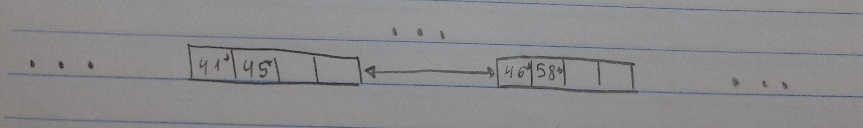 ...
... 41* 45* 46* 58* ...